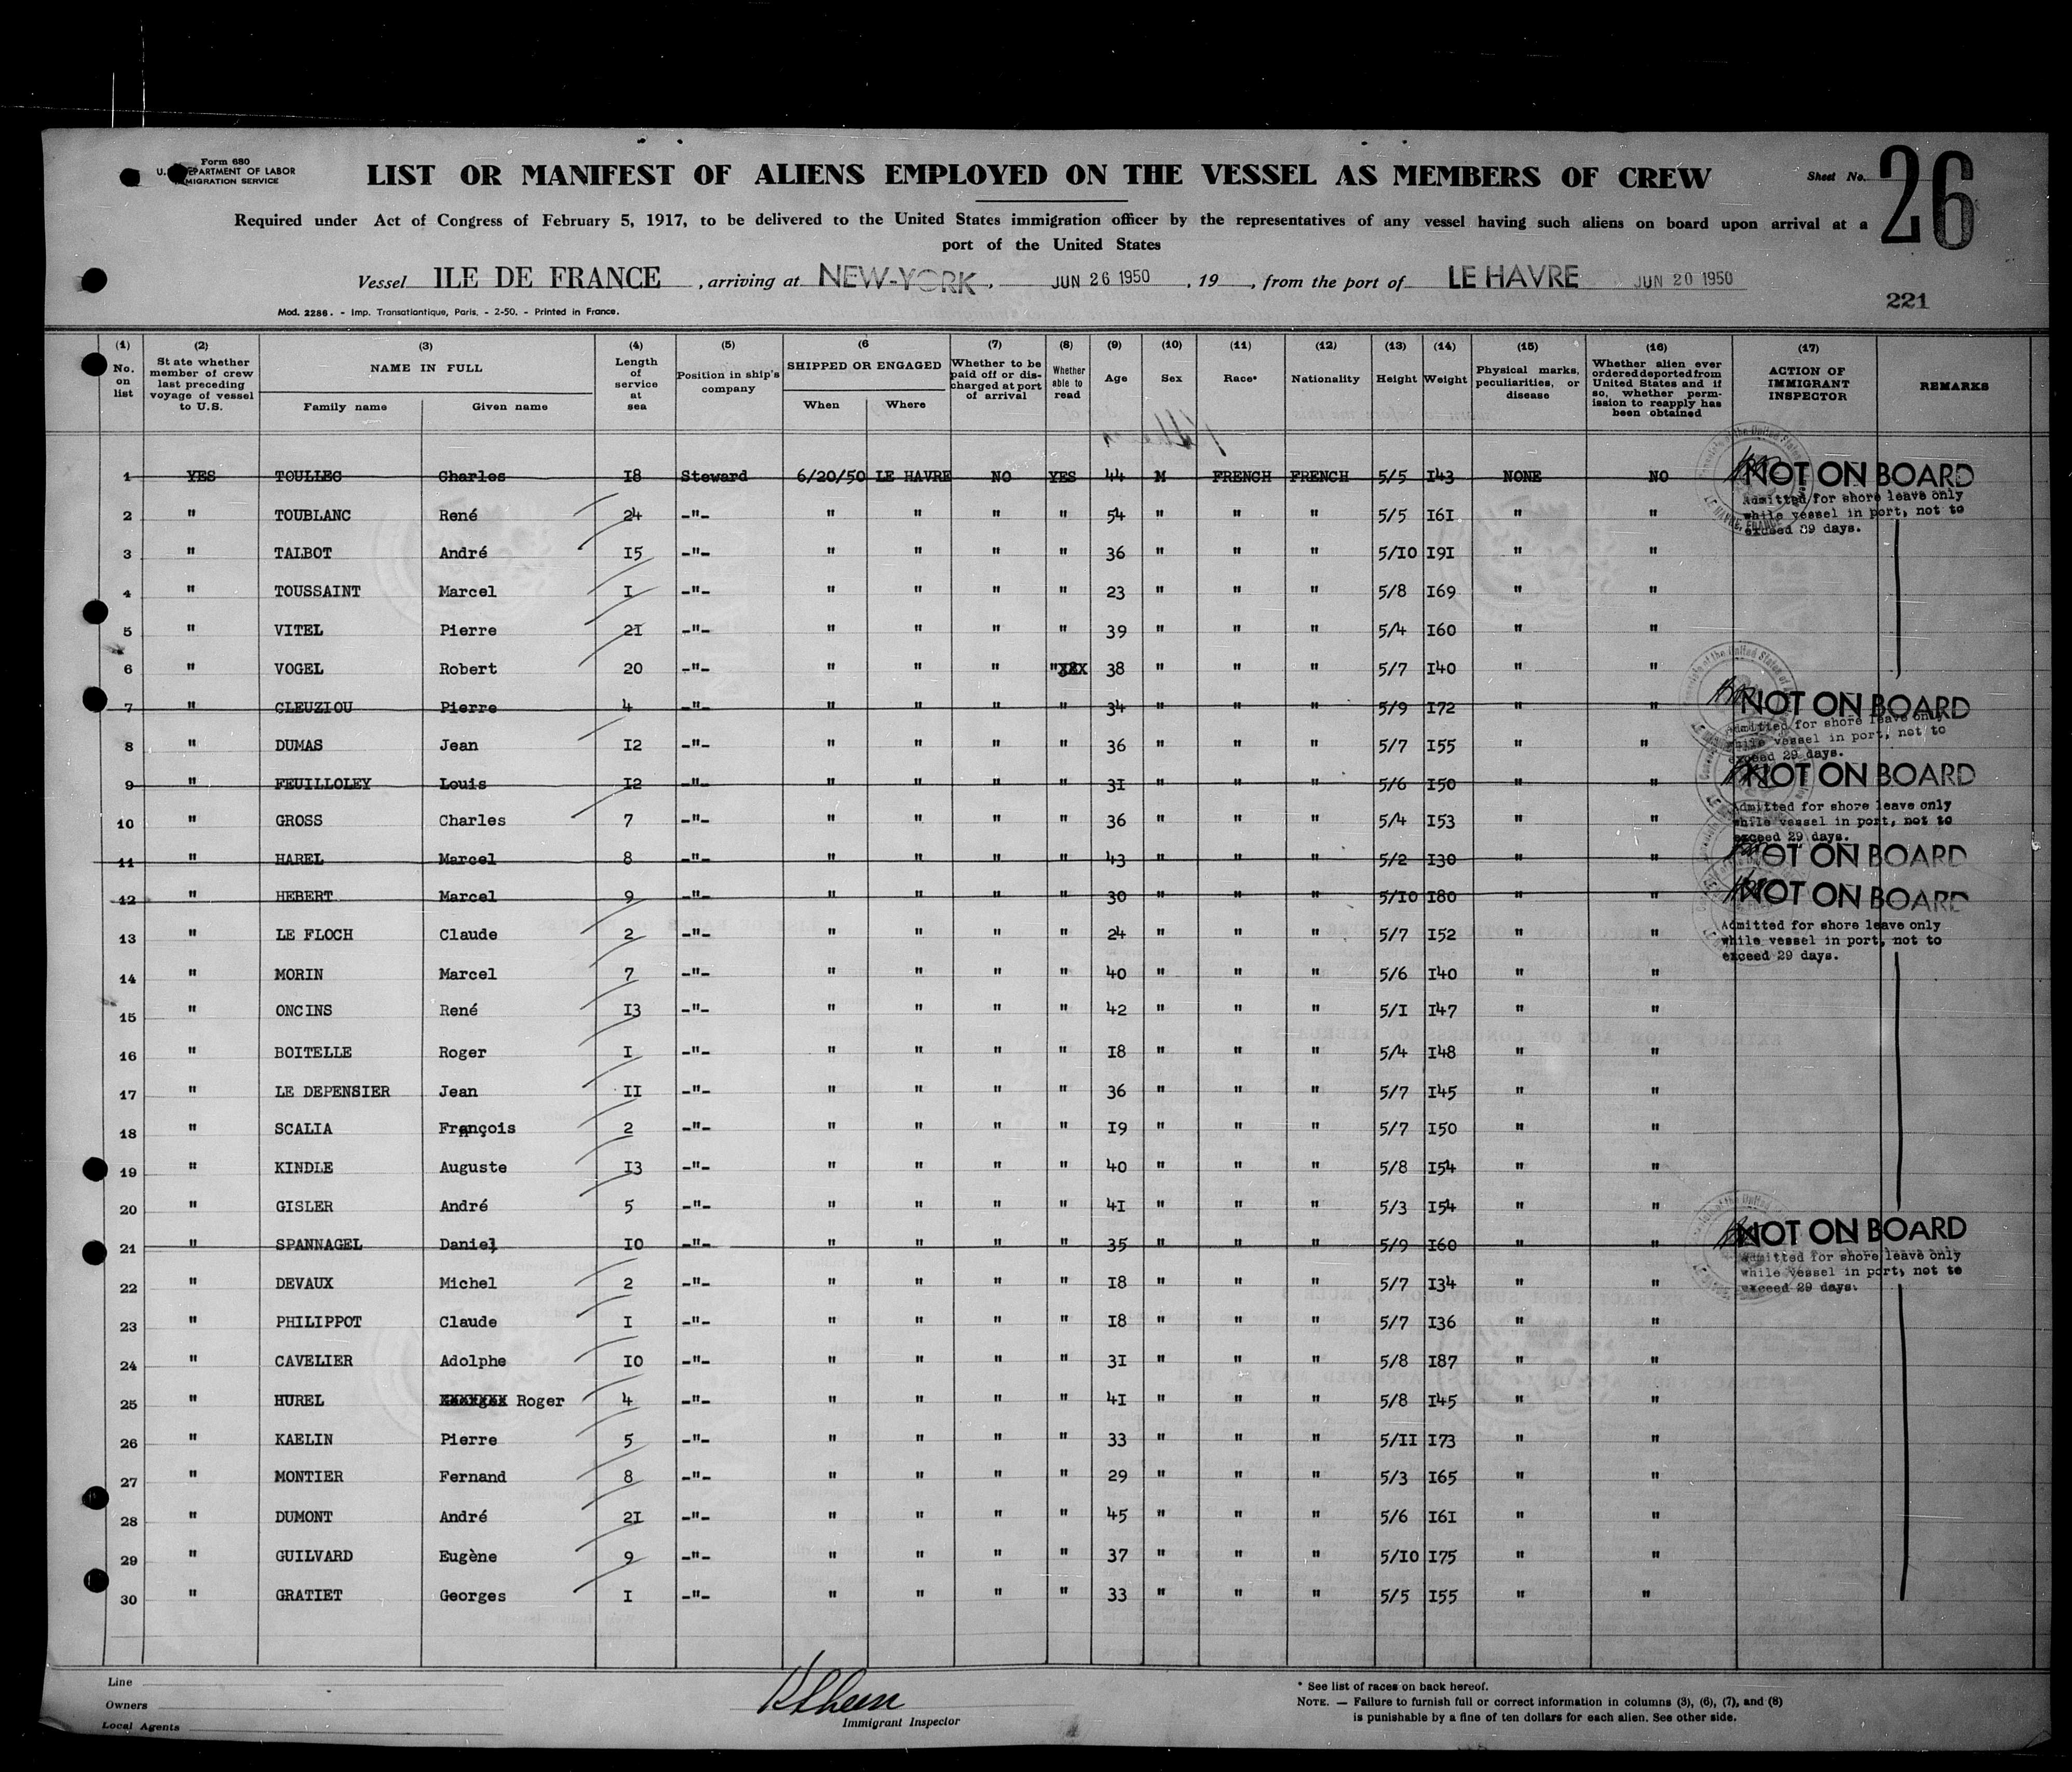 Form 680
U. DEPARTMENT OF LABOR
MIGRATION SERVICE
LIST OR MANIFEST OF ALIENS EMPLOYED ON THE VESSEL AS MEMBERS OF CREW
Sheet No. 26
Required under Act of Congress of February 5, 1917, to be delivered to the United States immigration officer by the representatives of any vessel having such aliens on board upon arrival at a
port of the United States
Vessel ILE DE FRANCE, arriving at NEW-YORK, JUN 26 1950, 19, from the port of LE HAVRE JUN 20 1950
221
Mod. 2286. - Imp. Transatlantique, Paris. - 2-50. - Printed in France.
(1) No. on list
(2) State whether member of crew last preceding voyage of vessel to U.S.
(3) NAME IN FULL
Family name Given name
(4) Length of service at sea
(5) Position in ship's company
(6 SHIPPED OR ENGAGED
When Where
(7) Whether to be paid off or discharged at port of arrival
(8) Whether able to read
(9) Age
(10) Sex
(11) Race*
(12) Nationality
(13) Height
(14) Weight
(15) Physical marks, peculiarities, or disease
(16) Whether alien ever ordered deported from United States and if so, whether permission to reapply has been obtained
(17) ACTION OF IMMIGRANT INSPECTOR
REMARKS
1 YES TOULLEC Charles I8 Steward 6/20/50 LE HAVRE NO YES 44 M FRENCH FRENCH 5/5 I43 NONE NO NOT ON BOARD
Admitted for shore leave only
while vessel in port, not to
exceed 29 days.
2 " TOUBLANC René 24 -"- " " " " 54 " " " 5/5 I6I " "
3 " TALBOT André I5 -"- " " " " 36 " " " 5/IO I9I " "
4 " TOUSSAINT Marcel I -"- " " " " 23 " " " 5/8 I69 " "
5 " VITEL Pierre 2I -"- " " " " 39 " " " 5/4 I60 " "
6 " VOGEL Robert 20 -"- " " " " 38 " " " 5/7 I40 " "
7 " CLEUZIOU Pierre 4 -"- " " " " 34 " " " 5/9 I72 " " NOT ON BOARD
Admitted for shore leave only
while vessel in port, not to
exceed 29 days.
8 " DUMAS Jean I2 -"- " " " " 36 " " " 5/7 I55 " "
9 " FEUILLOLEY Louis I2 -"- " " " " 3I " " " 5/6 I50 " " NOT ON BOARD
Admitted for shore leave only
while vessel in port, not to
exceed 29 days.
10 " GROSS Charles 7 -"- " " " " 36 " " " 5/4 I53 " "
11 " HAREL Marcel 8 -"- " " " " 43 " " " 5/2 I30 " " NOT ON BOARD
12 " HEBERT Marcel 9 -"- " " " " 30 " " " 5/IO I80 " " NOT ON BOARD
Admitted for shore leave only
while vessel in port, not to
exceed 29 days.
13 " LE FLOCH Claude 2 -"- " " " " 24 " " " 5/7 I52 " "
14 " MORIN Marcel 7 -"- " " " " 40 " " " 5/6 I40 " "
15 " ONCINS René I3 -"- " " " " 42 " " " 5/I I47 " "
16 " BOITELLE Roger I -"- " " " " I8 " " " 5/4 I48 " "
17 " LE DEPENSIER Jean II -"- " " " " 36 " " " 5/7 I45 " "
18 " SCALIA François 2 -"- " " " " I9 " " " 5/7 I50 " "
19 " KINDLE Auguste I3 -"- " " " " 40 " " " 5/8 I54 " "
20 " GISLER André 5 -"- " " " " 4I " " " 5/3 I54 " "
21 " SPANNAGEL Daniel IO -"- " " " " 35 " " " 5/9 I60 " " NOT ON BOARD
Admitted for shore leave only
while vessel in port, not to
exceed 29 days.
22 " DEVAUX Michel 2 -"- " " " " I8 " " " 5/7 I34 " "
23 " PHILIPPOT Claude I -"- " " " " I8 " " " 5/7 I36 " "
24 " CAVELIER Adolphe IO -"- " " " " 3I " " " 5/8 I87 " "
25 " HUREL Roger 4 -"- " " " " 4I " " " 5/8 I45 " "
26 " KAELIN Pierre 5 -"- " " " " 33 " " " 5/II I73 " "
27 " MONTIER Fernand 8 -"- " " " " 29 " " " 5/3 I65 " "
28 " DUMONT André 2I -"- " " " " 45 " " " 5/6 I6I " "
29 " GUILVARD Eugène 9 -"- " " " " 37 " " " 5/IO I75 " "
30 " GRATIET Georges I -"- " " " " 33 " " " 5/5 I55 " "
Line
Owners
Local Agents
Immigrant Inspector
* See list of races on back hereof.
NOTE. — Failure to furnish full or correct information in columns (3), (6), (7), and (8)
is punishable by a fine of ten dollars for each alien. See other side.